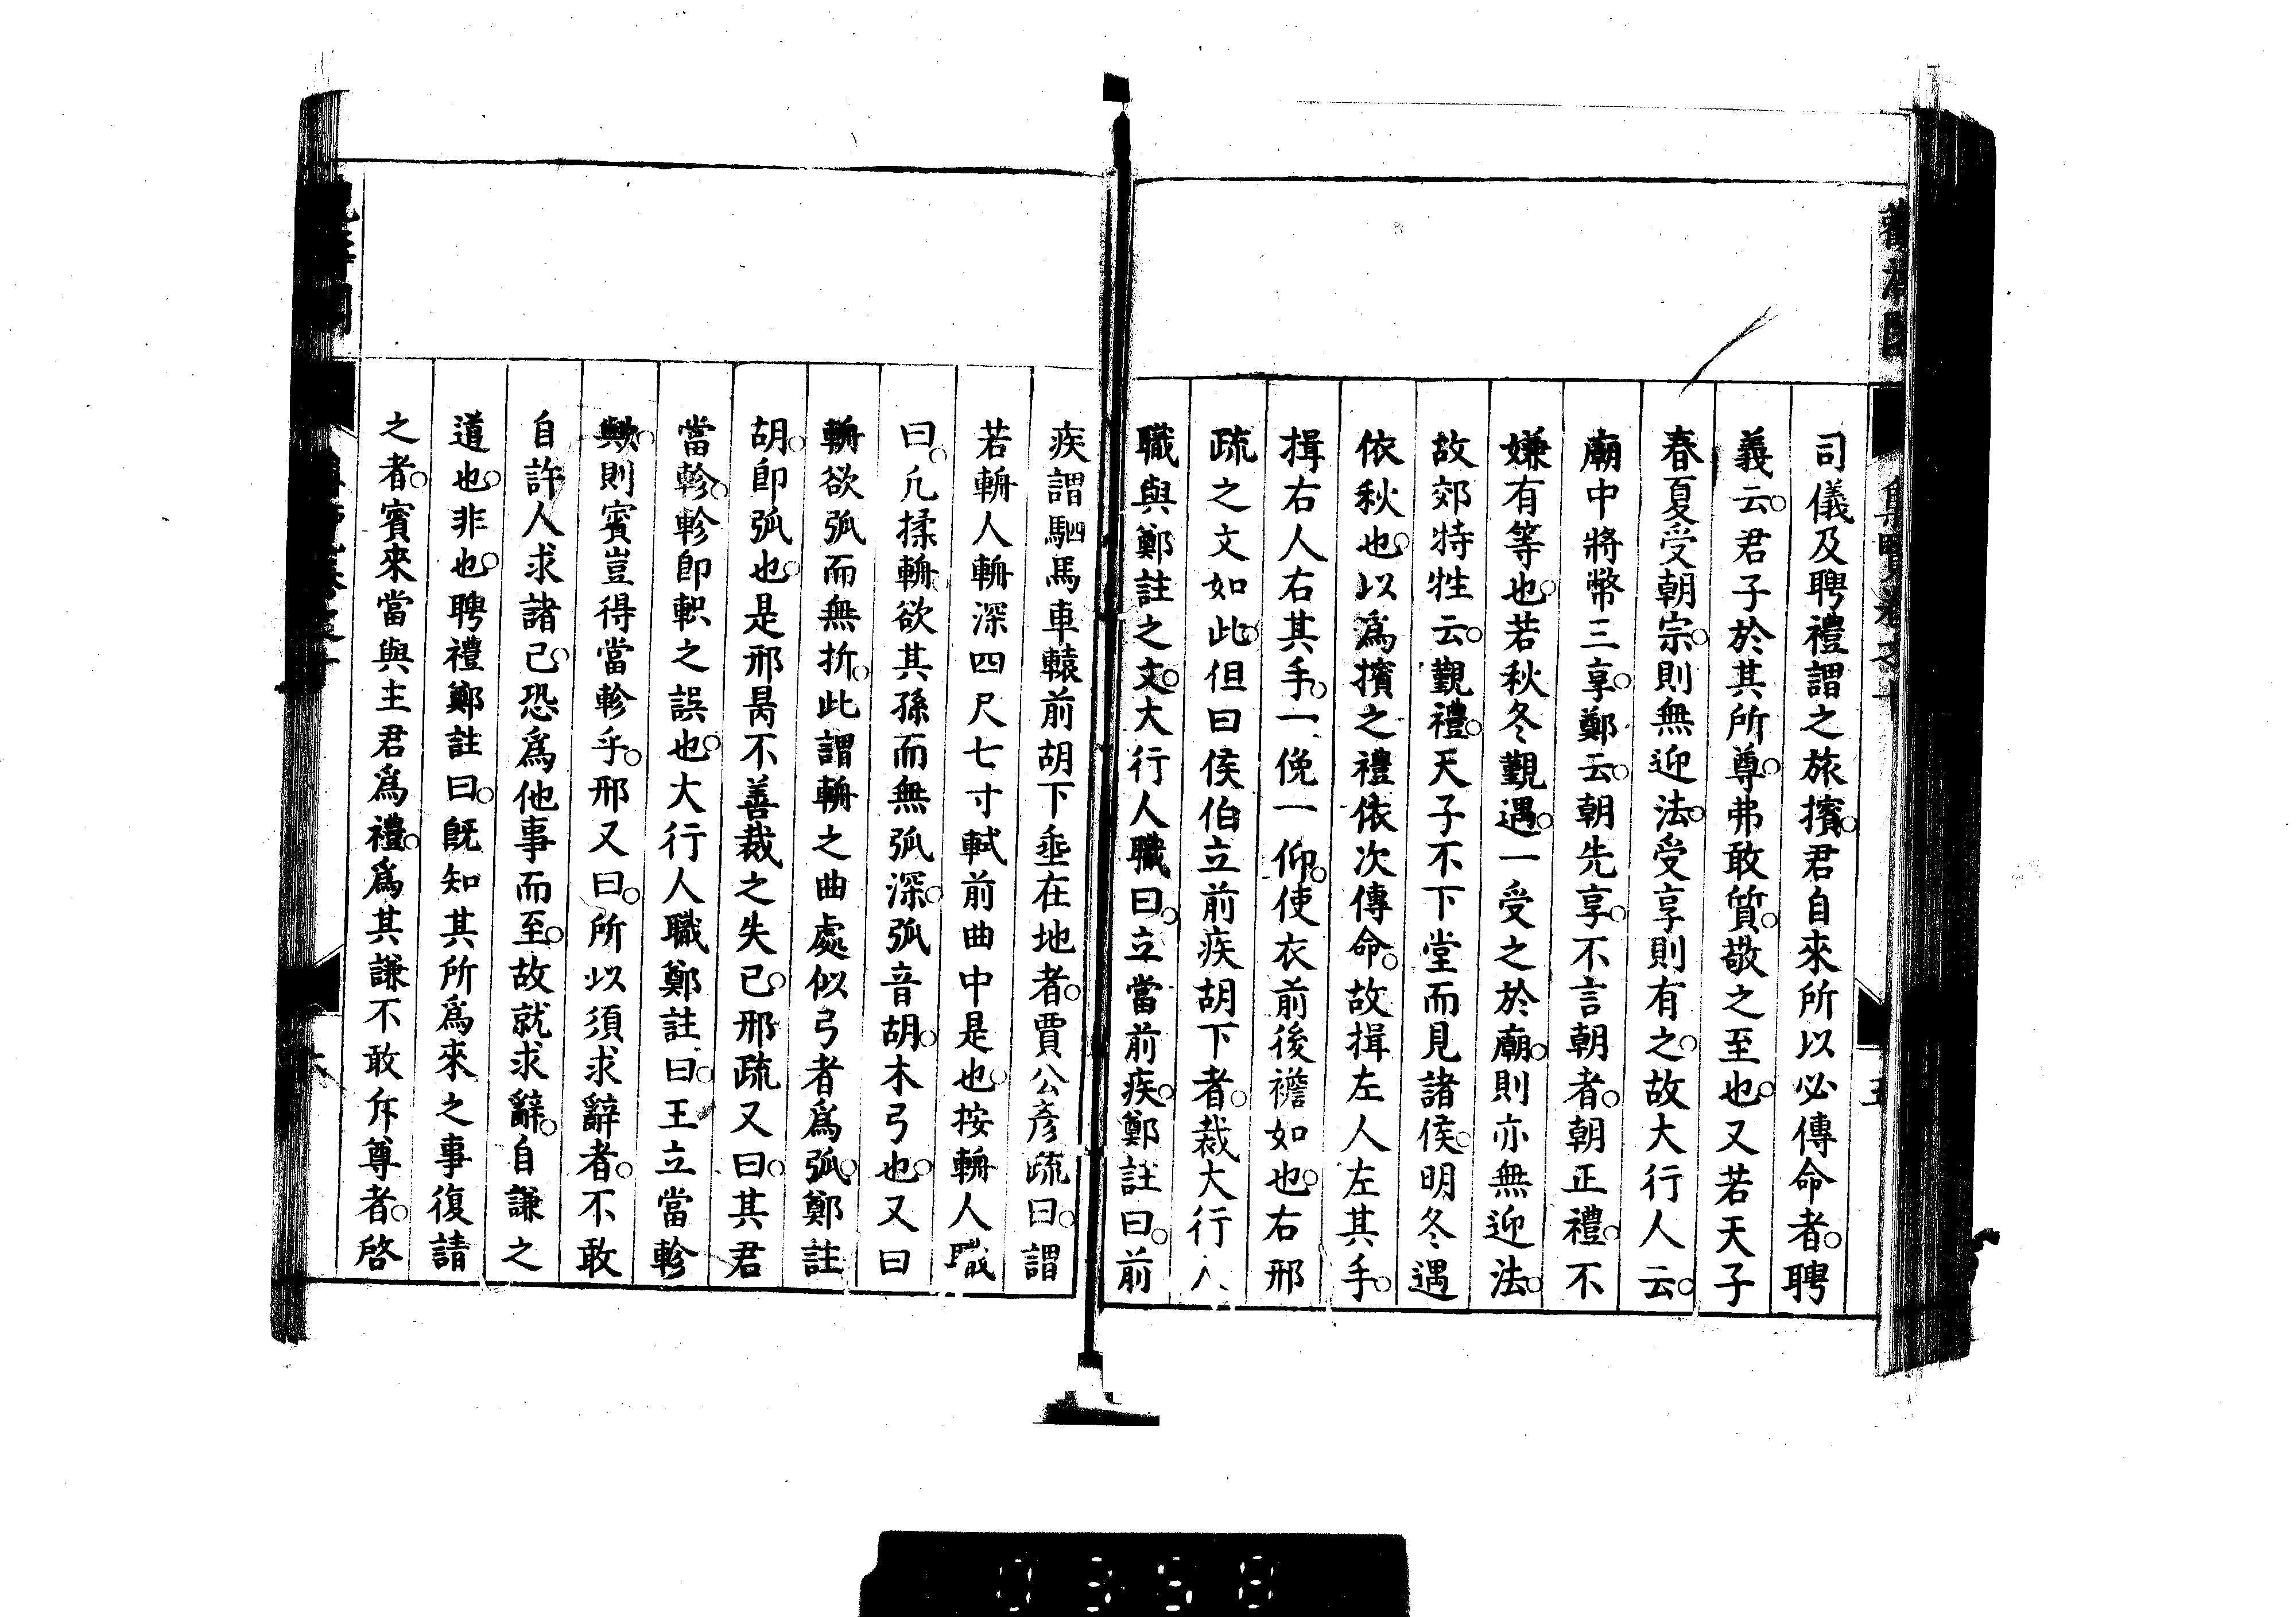 司儀及聘禮謂之旅擯。君自來所以必傳命者。聘
義云。君子於其所尊。弗敢質。敬之至也。又若天子
春夏受朝宗。則無迎法。受享則有之。故大行人云。
廟中將幣三享。鄭云。朝先享。不言朝者。朝正禮。不
嫌有等也。若秋冬覲遇。一受之於廟。則亦無迎法。
故郊特牲云。覲禮。天子不下堂而見諸侯。明冬遇
依秋也。以爲擯之禮依次傳命。故揖左人左其手。
揖右人右其手。一俛一仰。使衣前後襜如也。右邢
疏之文如此。但曰侯伯立前疾胡下者。裁大行人
職與鄭註之文。大行人職曰。立當前疾。鄭註曰。前
疾謂駟馬車轅前胡下垂在地者。賈公彥疏曰。謂
若輈人輈深四尺七寸軾前曲中是也。按輈人職
曰。凡揉輈欲其孫而無弧深。弧音胡。木弓也。又曰
輈欲弧而無折。此謂輈之曲處似弓者爲弧。鄭註
胡。即弧也。是邢昺不善裁之失已。邢疏又曰。其君
當軫。軫即軹之誤也。大行人職鄭註曰。王立當軫
歟。則賓豈得當軫乎。邢又曰。所以須求辭者。不敢
自許人求諸己。恐爲他事而至。故就求辭。自謙之
道也。非也。聘禮鄭註曰。旣知其所爲來之事復請
之者。賓來當與主君爲禮。爲其謙不敢斥尊者。啓
0358